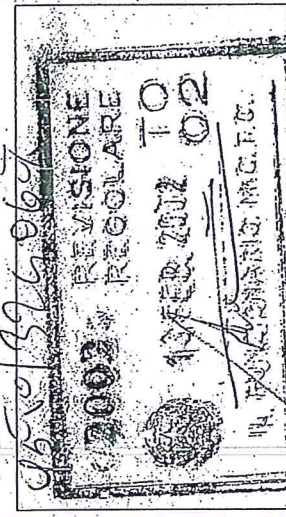 2002 REVISIONE
REGOLARE
13 FEB. 2002 TO
02
IL FUNZIONARIO M.C.T.C.